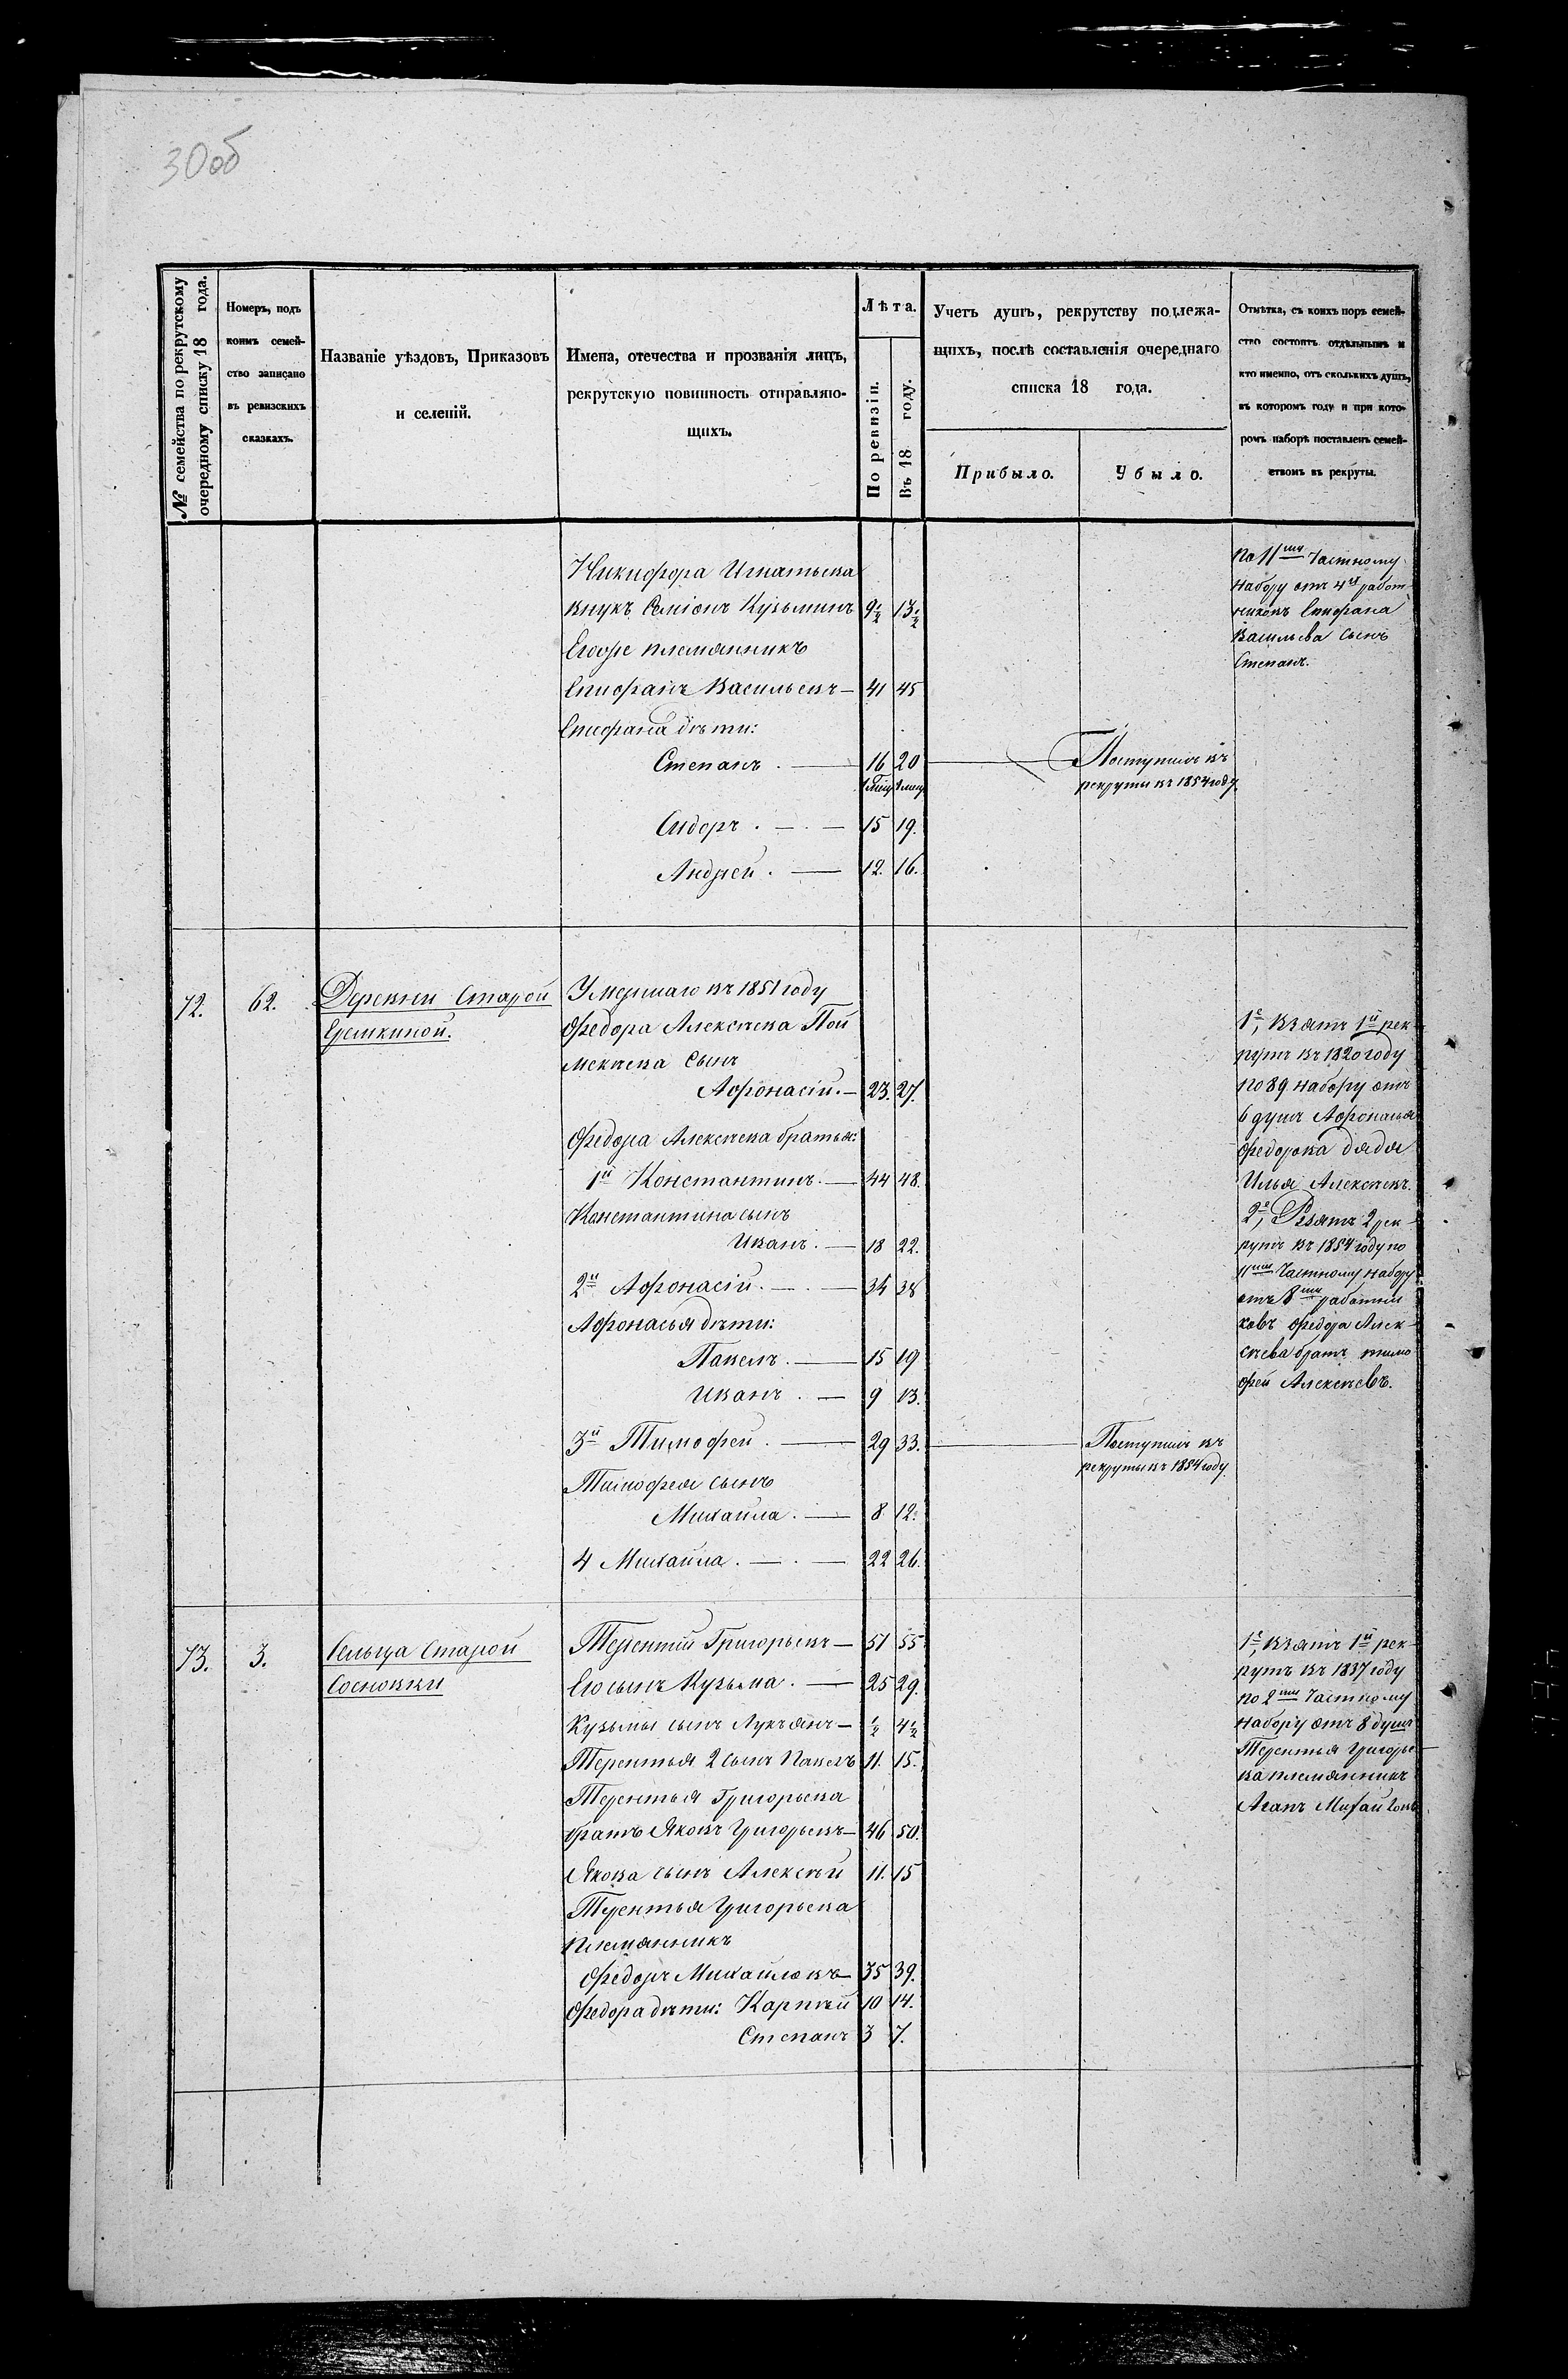 30об
№ семейства по рекрутскому очередному списку 18 года.
Номеръ, подъ коимъ семейство записано въ ревизскихъ сказкахъ.
Названіе уѣздовъ, Приказовъ и селеній.
Имена, отечества и прозванія лицъ, рекрутскую повинность отправляющихъ.
Лѣта.
По ревизіи.
Въ 18 году.
Учетъ душъ, рекрутству подлежащихъ, послѣ составленія очереднаго списка 18 года.
Прибыло.
Убыло.
Отмѣтка, съ коихъ поръ семейство состоитъ отдѣльнымъ и кто именно, отъ сколькихъ душъ, въ которомъ году и при которомъ наборѣ поставленъ семействомъ въ рекруты.
Никифора Игнатьева
внукъ Семіонъ Кузьминъ 9½ 13½
Егоре племянникъ
Епифанъ Васильевъ — 41 45
Епифана дѣти:
Степанъ . — 16 20 — Поступилъ въ
рекруты въ 1854 году.
Сидоръ . — . — 15 19.
Андрей . — 12. 16.
По 11му Частному
набору отъ 4хъ работ
никовъ Епифана
Васильева сынъ
Степанъ.
72. 62. Деревни Старой
Еремкиной.
Умершаго въ 1851 году
Федора Алексѣева Пой
мекѣева сынъ
Афонасій. — 23. 27.
Федора Алексѣева братья:
1й Константинъ. — 44 48.
Константина сынъ
Иванъ. — 18 22.
2й Афонасій. — . — 34 38
Афонасья дѣти:
Павелъ. — 15 19
Иванъ . — 9 13.
3й Тимофей . — 29 33. — Поступилъ въ
рекруты въ 1854 году.
Тимофея сынъ
Михаила . — 8 12.
4 Михаила . — . — 22 26.
1е, взятъ 1й рек
рутъ въ 1820 году
по 89 набору отъ
6 душъ Афонасья
Федорова дядя
Илья Алексѣевъ.
2е, Взятъ 2 рек
рутъ въ 1854 году по
11му Частному набору
отъ 8ми работни
ковъ Федора Алек
сѣева братъ Тимо
фей Алексѣевъ.
73. 3. Сельца Старой
Сосновки
Терентій Григорьевъ — 51 55
Его сынъ Кузьма . — 25 29.
Кузьмы сынъ Лукъянъ — ½ 4½
Терентья 2 сынъ Павелъ 11. 15.
Терентья Григорьева
братъ Яковъ Григорьевъ — 46 50.
Якова сынъ Алексѣй 11. 15
Терентья Григорьева
племянникъ
Федоръ Михайловъ — 35 39.
Федора дѣти: Карпѣй 10 14.
Степанъ 3 7.
1е, взятъ 1й рек
рутъ въ 1837 году
по 2му Частному
набору отъ 8 душъ
Терентья Григорье
ва племянникъ
Агапъ Михайловъ